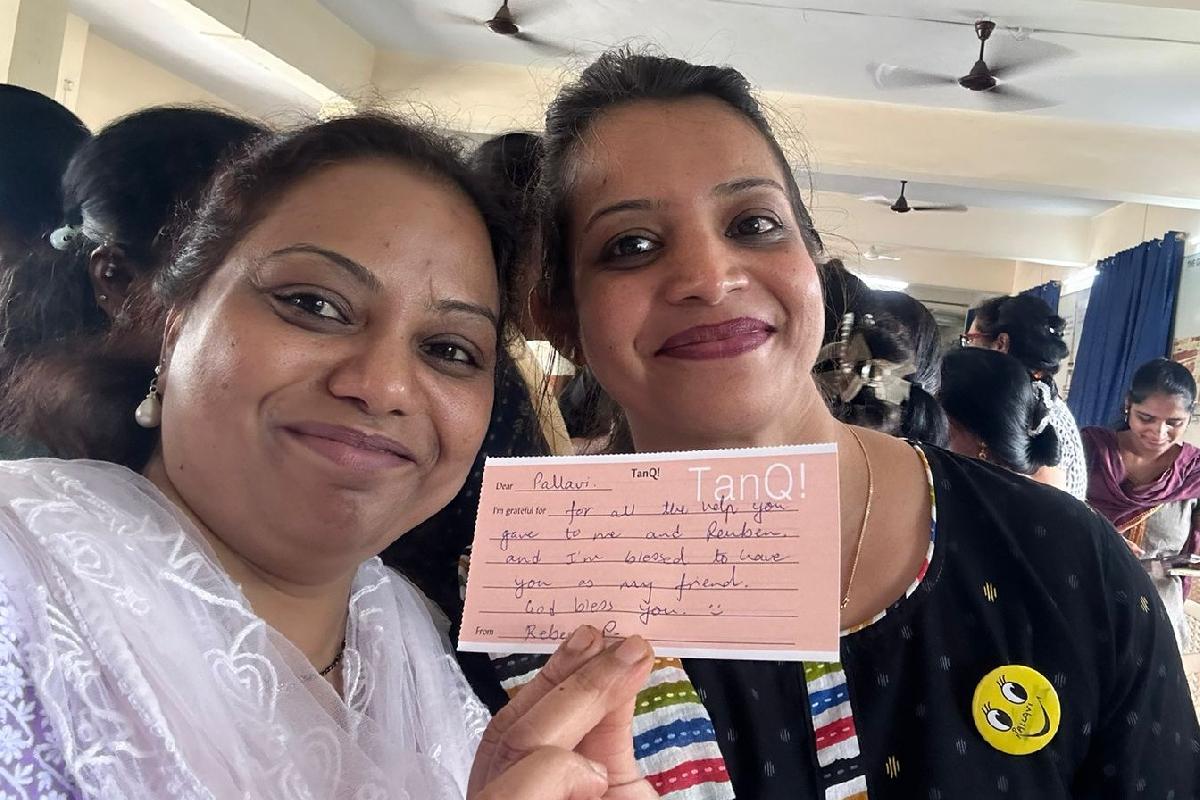 TanQ!
TanQ!
Dear Pallavi.
I'm grateful for for all the help you
gave to me and Reuben.
and I'm blessed to have
you as my friend.
God bless you. ☺
From P.
PALLAVI